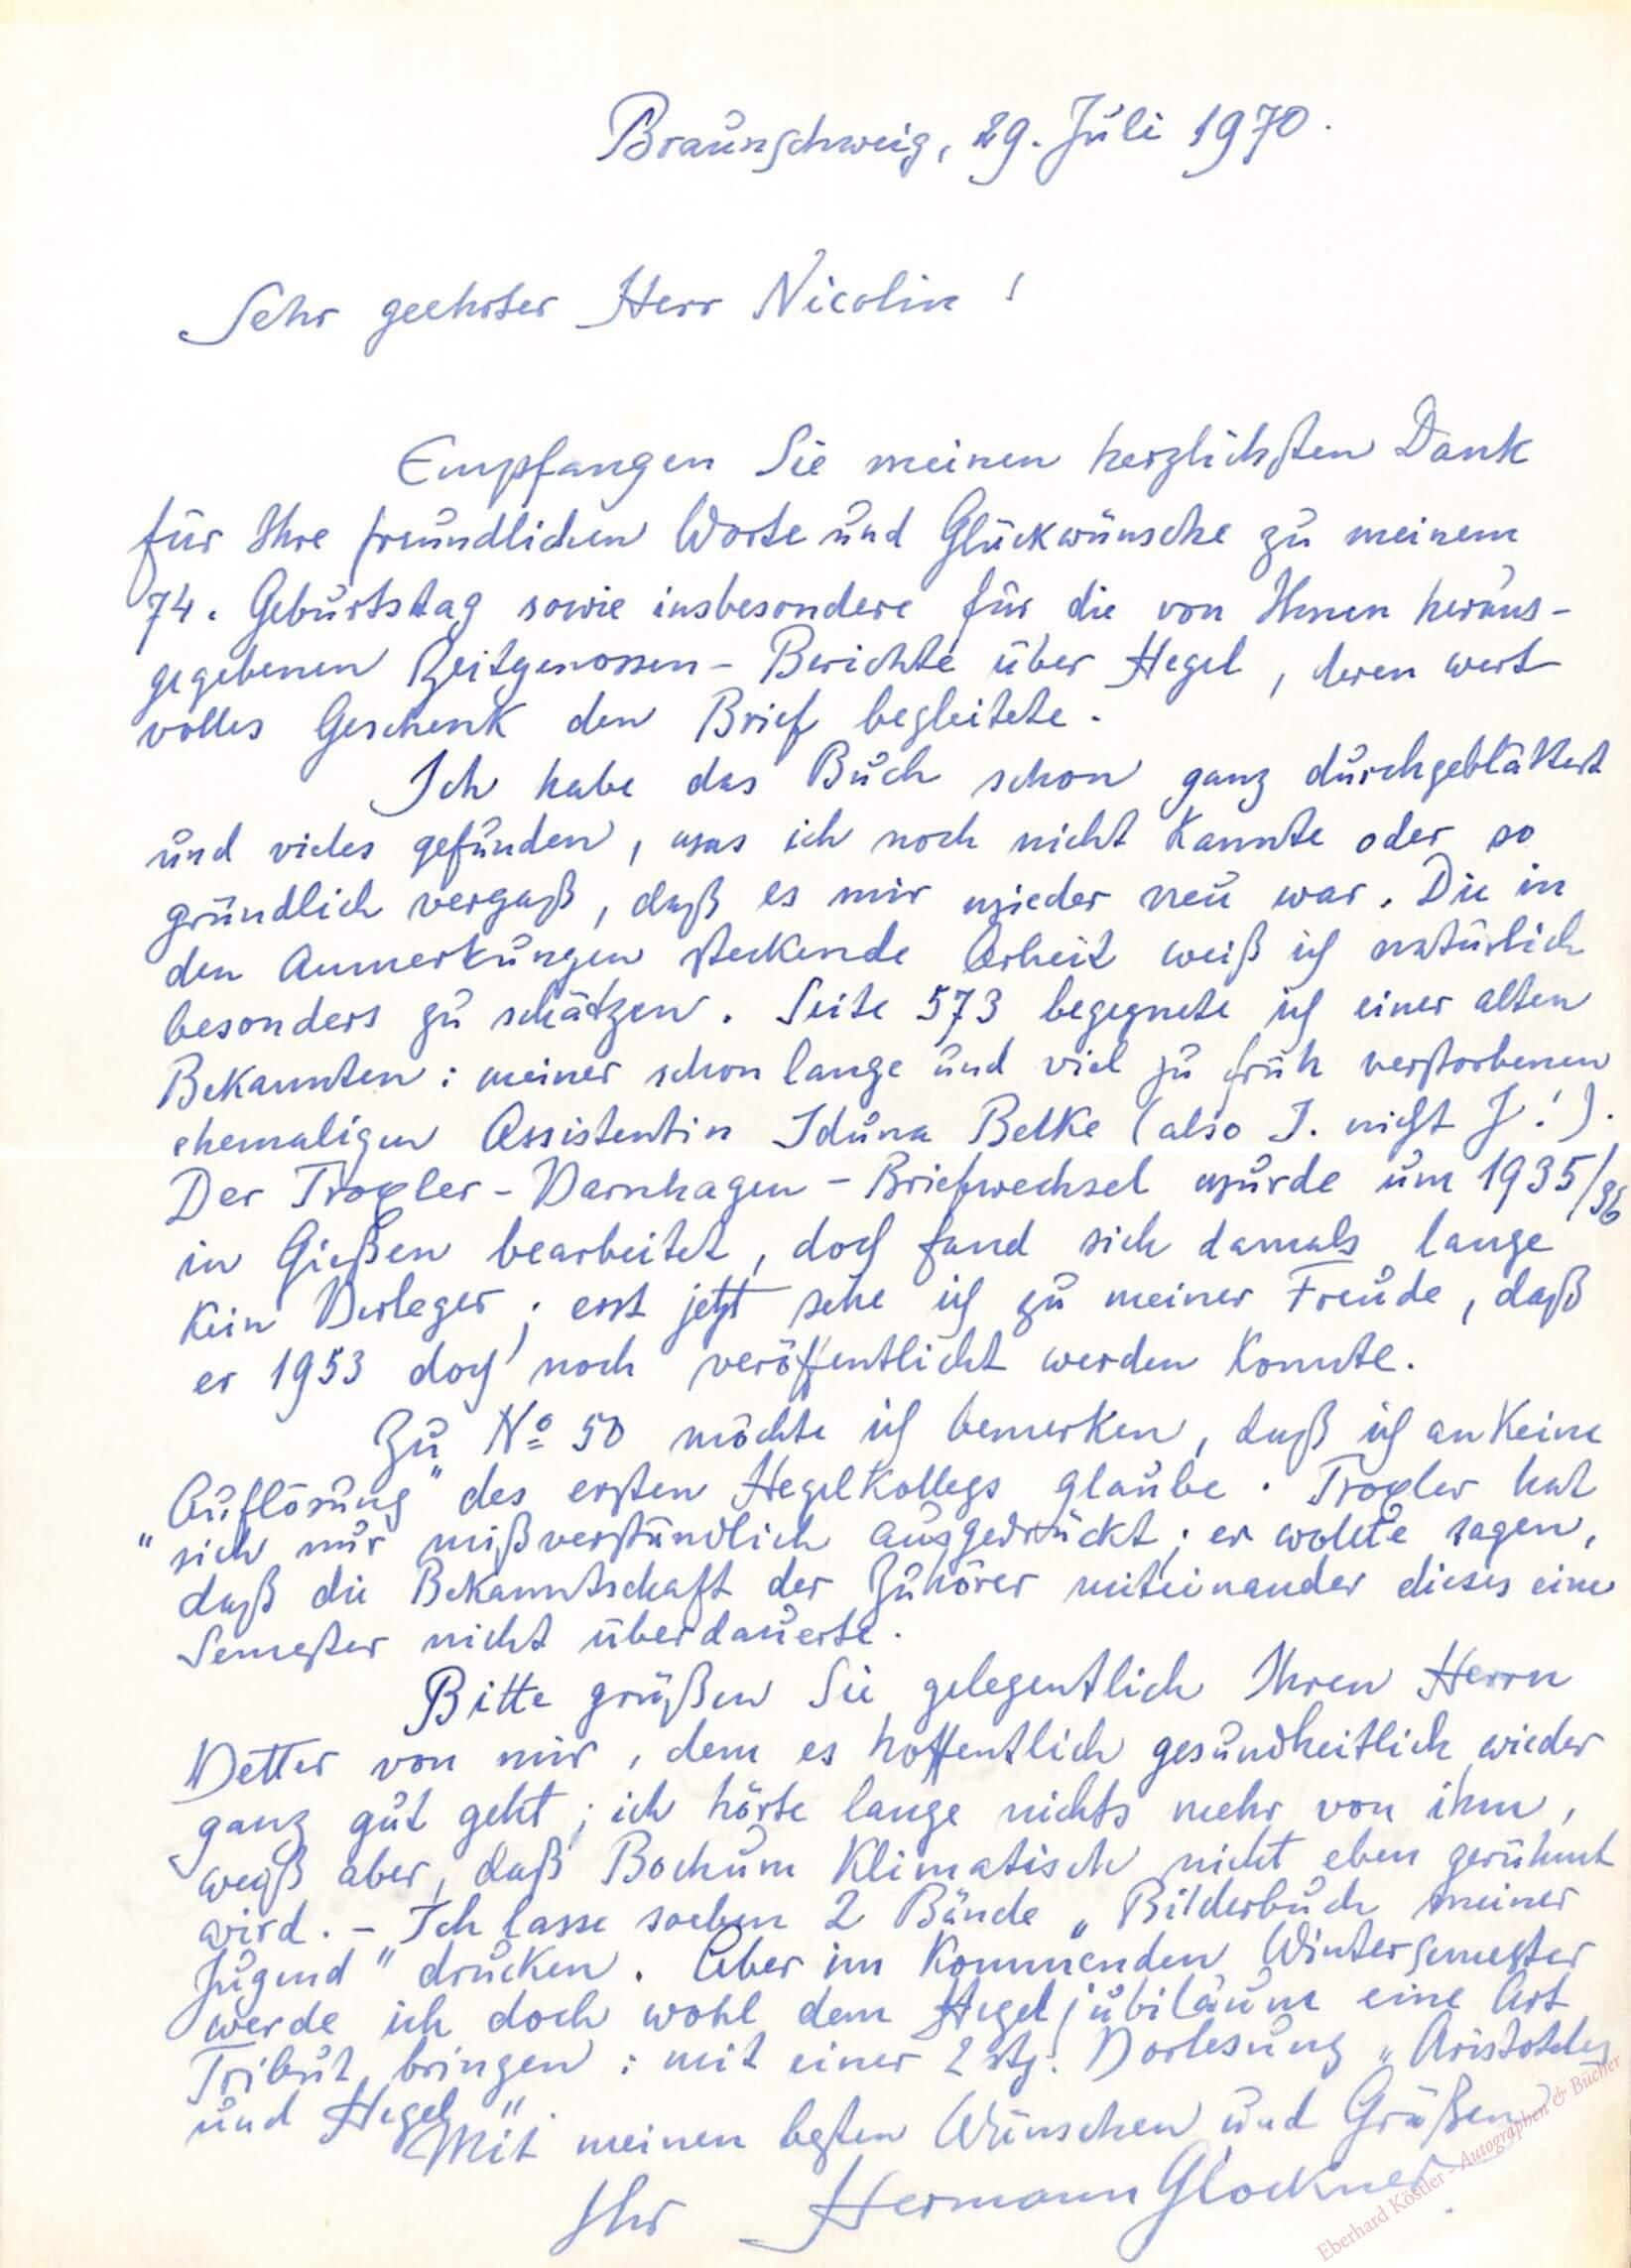 Braunschweig, 29. Juli 1970.
Sehr geehrter Herr Nicolin!
Empfangen Sie meinen herzlichsten Dank
für Ihre freundlichen Worte und Glückwünsche zu meinem
74. Geburtstag sowie insbesondere für die von Ihnen heraus-
gegebenen Zeitgenossen-Berichte über Hegel, deren wert-
volles Geschenk den Brief begleitete.
Ich habe das Buch schon ganz durchgeblättert
und vieles gefunden, was ich noch nicht kannte oder so
gründlich vergaß, daß es mir wieder neu war. Die in
den Anmerkungen steckende Arbeit weiß ich natürlich
besonders zu schätzen. Seite 573 begegnete ich einer alten
Bekannten: meiner schon lange und viel zu früh verstorbenen
ehemaligen Assistentin Iduna Belke (also I. nicht J.!).
Der Troxler-Varnhagen-Briefwechsel wurde um 1935/36
in Gießen bearbeitet, doch fand sich damals lange
kein Verleger; erst jetzt sehe ich zu meiner Freude, daß
er 1953 doch noch veröffentlicht werden konnte.
Zu No 50 möchte ich bemerken, daß ich an keine
"Auflösung" des ersten Hegelkollegs glaube. Troxler hat
sich nur mißverständlich ausgedrückt; er wollte sagen,
daß die Bekanntschaft der Zuhörer miteinander dieses eine
Semester nicht überdauerte.
Bitte grüßen Sie gelegentlich Ihren Herrn
Vetter von mir, dem es hoffentlich gesundheitlich wieder
ganz gut geht; ich hörte lange nichts mehr von ihm,
weiß aber, daß Bochum klimatisch nicht eben gerühmt
wird. - Ich lasse soeben 2 Bände "Bilderbuch meiner
Jugend" drucken. Aber im kommenden Wintersemester
werde ich doch wohl dem Hegeljubiläum eine Art
Tribut bringen: mit einer 2 stg. Vorlesung "Aristoteles
und Hegel"
Mit meinen besten Wünschen und Grüßen
Ihr Hermann Glockner.
Eberhard Köstler - Autographen & Bücher